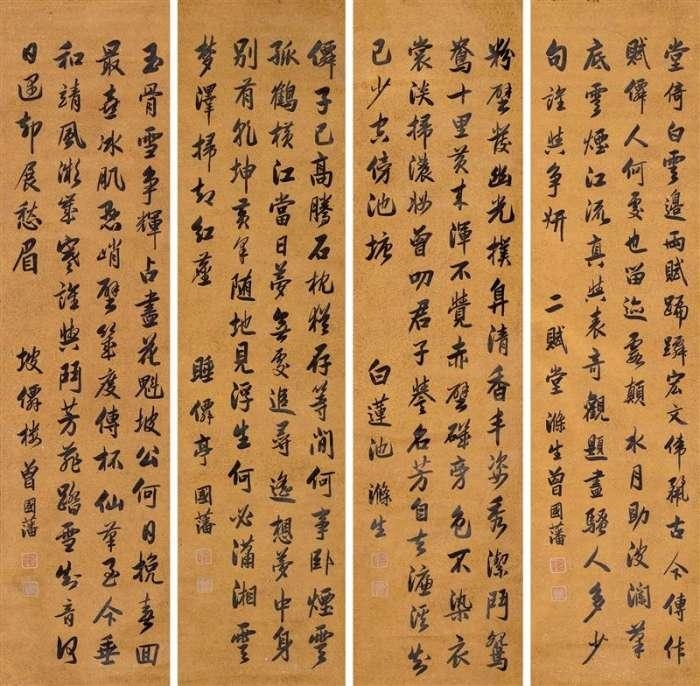 堂倚白雲邊兩賦蹁躚宏文偉麗古今傳作
賦僊人何處也留迹雲顛 水月助波瀾筆
底雲煙江流真與表奇觀題盡騷人多少
句誰與爭妍 二賦堂滌生曾國藩
粉壁發幽光撲鼻清香丰姿秀潔鬥鴛
鴦十里渾不覺赤壁磯旁色不染衣
裳淡掃濃妝曾叨君子譽名芳自去濂溪知
己少空傍池塘 白蓮池滌生
僊子已高騰石枕猶存等閒何事臥煙雲
孤鶴橫江當日夢無處追尋遙想夢中身
別有乾坤黃州隨地見浮生何必瀟湘雲
夢澤掃却紅塵 睡僊亭國藩
玉骨雪爭輝占盡花魁坡公何日挽春回
最喜冰肌憑峭壁幾度傳杯仙筆至今垂
和靖風寒誰與鬥芳菲踏雪知音何
日遇却展愁眉 坡僊樓曾國藩